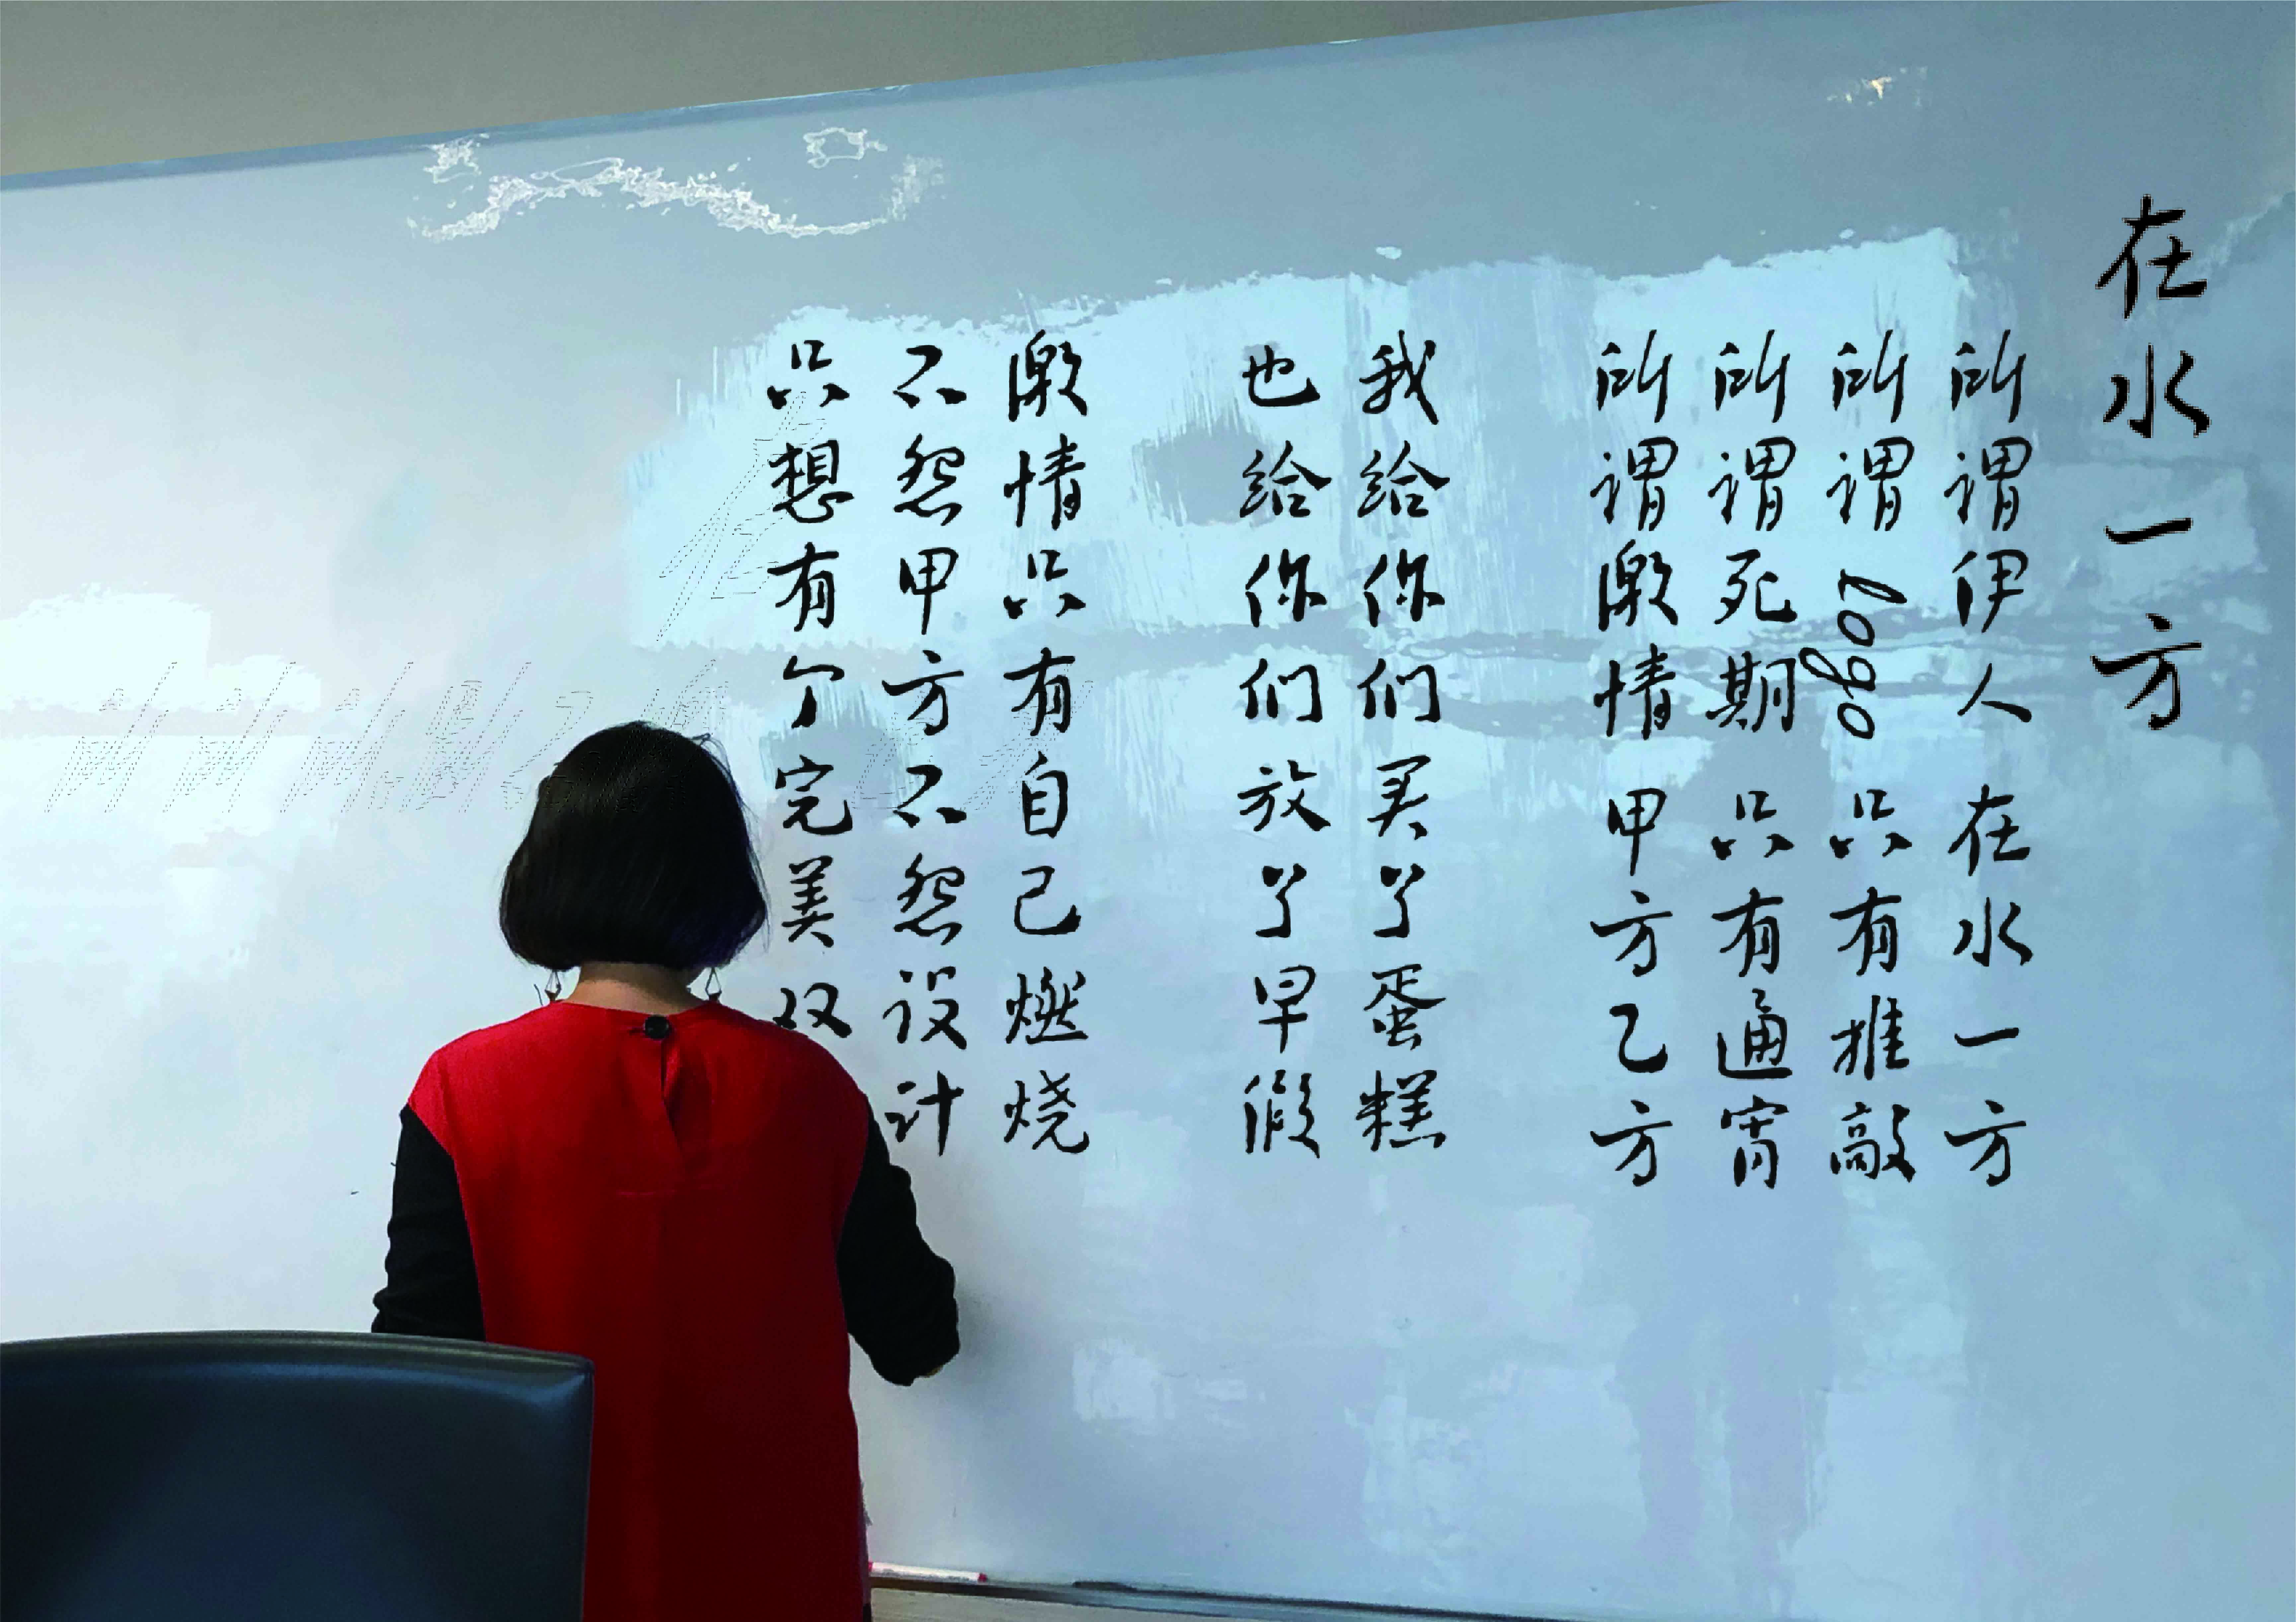 在水一方
所谓伊人 在水一方
所谓logo 只有推敲
所谓死期 只有通宵
所谓激情 甲方乙方
我给你们买了蛋糕
也给你们放了早假
激情只有自己燃烧
不怨甲方不怨设计
只想有个完美双